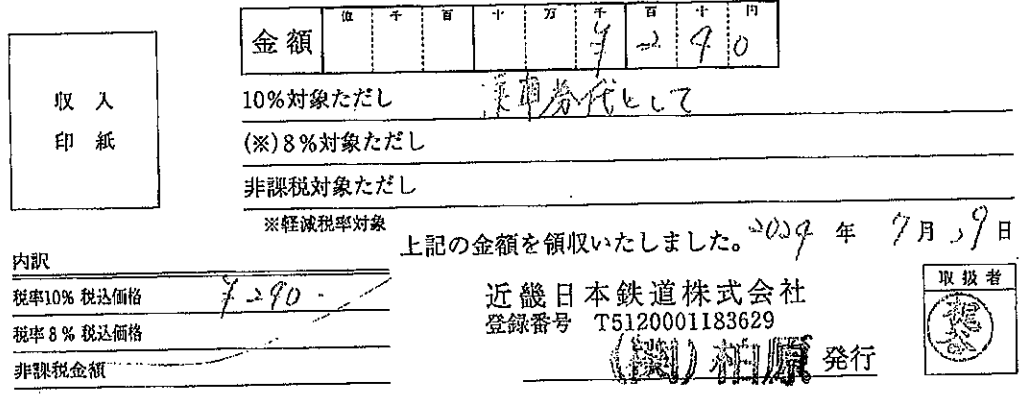 億 千 百 十 万 千 百 十 円
金額 ¥290
収入
印紙
10%対象ただし 乗車券代として
(※)8%対象ただし
非課税対象ただし
※軽減税率対象
上記の金額を領収いたしました。2024年 7月 29日
内訳
税率10% 税込価格 ¥290-
税率8% 税込価格
非課税金額
近畿日本鉄道株式会社
登録番号 T5120001183629
柏原 発行
取扱者